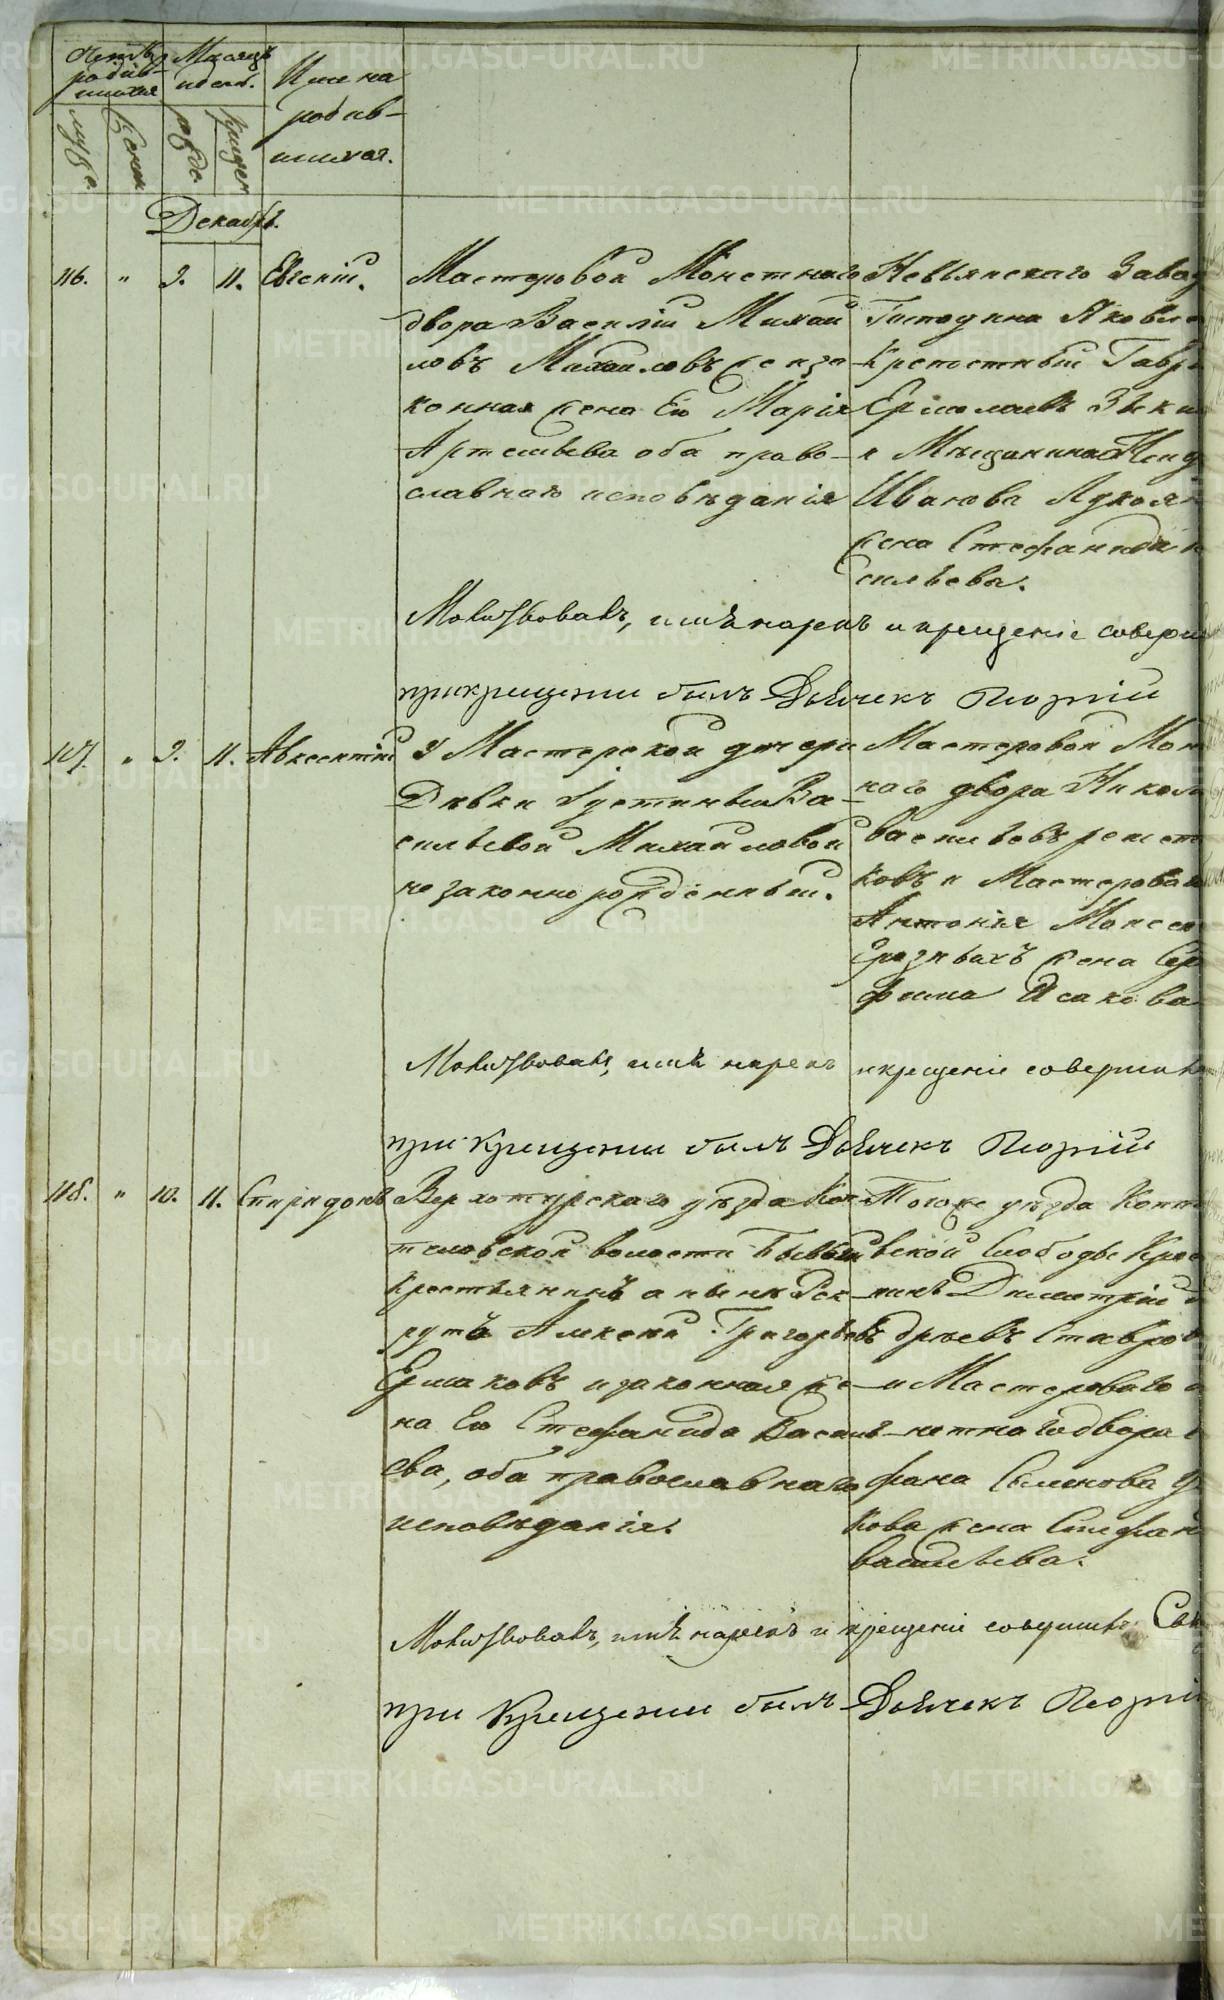 Счетъ родив-
шихся
Месяцъ
и день.
Имена
родив-
шихся.
муже.
женск
рожде.
крещен
Декабрь.
116. " 9. 11. Евгеній.
Мастеровой Монетнаго
двора Василій Михай
ловъ Михайловъ и за
конная жена Его Марія
Артемьева оба право-
славнаго исповѣданія
Невьянскаго Завод
Господина Яковле
крепостный Гавр
Ермолаевъ
и Мѣщанина
Иванова
жена Стефанида
сильева.
Молитвовалъ, имя нарекъ и крещеніе соверш
при крещеніи былъ Дьячекъ Георгій
117. " 9. 11. Авксентій
У Мастерской дочери
Дѣвки Устиньи Ва-
сильевой Михайловой
незаконно рожденный.
Мастеровой Мон
наго двора Никола
Васильевъ решет
ковъ и Мастероваго
Антонія Моисее
жена Сер
фима Исакова
Молитвовалъ, имя нарекъ и крещеніе совершилъ
при крещеніи былъ Дьячекъ Георгій
118. " 10. 11. Спиридонъ
Верхотурскаго уѣзда Коп
теловской волости бывый
крестьянинъ а ныне Рек-
рутъ Алексѣй Григорьевъ
Ермаковъ и законная же-
на Его Стефанида Василь-
ева, оба православнаго
исповѣданія.
Тогоже уѣзда Копте
вской Слободы Крест
нинъ Димитрій
дреевъ Ставров
и Мастероваго
нетнаго двора
фана Семенова
кова жена Стефан
Васильева.
Молитвовалъ, имя нарекъ и крещеніе совершилъ Свя
при крещеніи былъ Дьячекъ Георгій
METRIKI.GASO-URAL.RU